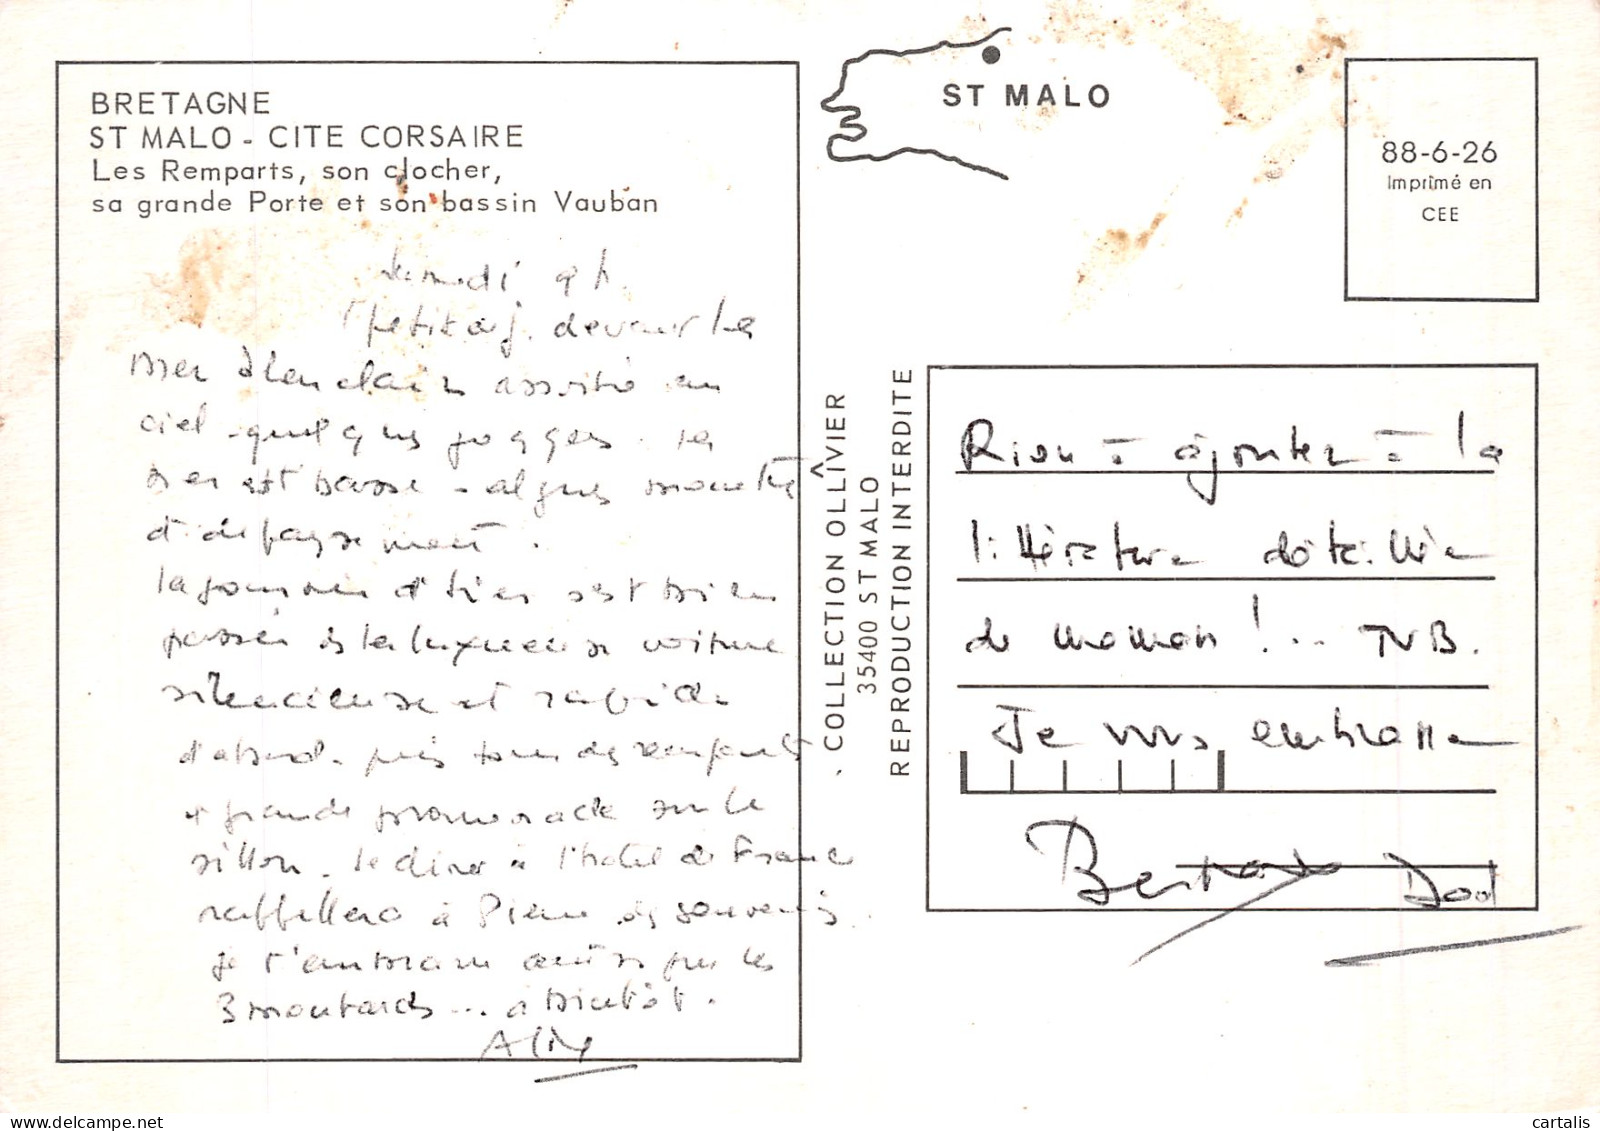 BRETAGNE
ST MALO - CITE CORSAIRE
Les Remparts, son clocher,
sa grande Porte et son bassin Vauban
samedi 9h.
petit dej. devant la
mer bleu clair assortie au
ciel - quelques joggers. la
mer est basse - algues mouettes
dépaysement.
la journée d'hier s'est bien
passée ds la luxueuse voiture
silencieuse et rapide
d'abord. puis tour des remparts
et grande promenade sur le
sillon. le diner à l'hotel de France
rappellera à Pierre des souvenirs.
je t'embrasse ainsi que les
3 moutards... à bientôt.
Aline
ST MALO
88-6-26
Imprimé en
CEE
COLLECTION OLLIVIER
35400 ST MALO
REPRODUCTION INTERDITE
Rien à ajouter à la
littérature détaillée
de maman !... NB.
Je vous embrasse
Bertrand Dad
cartalis